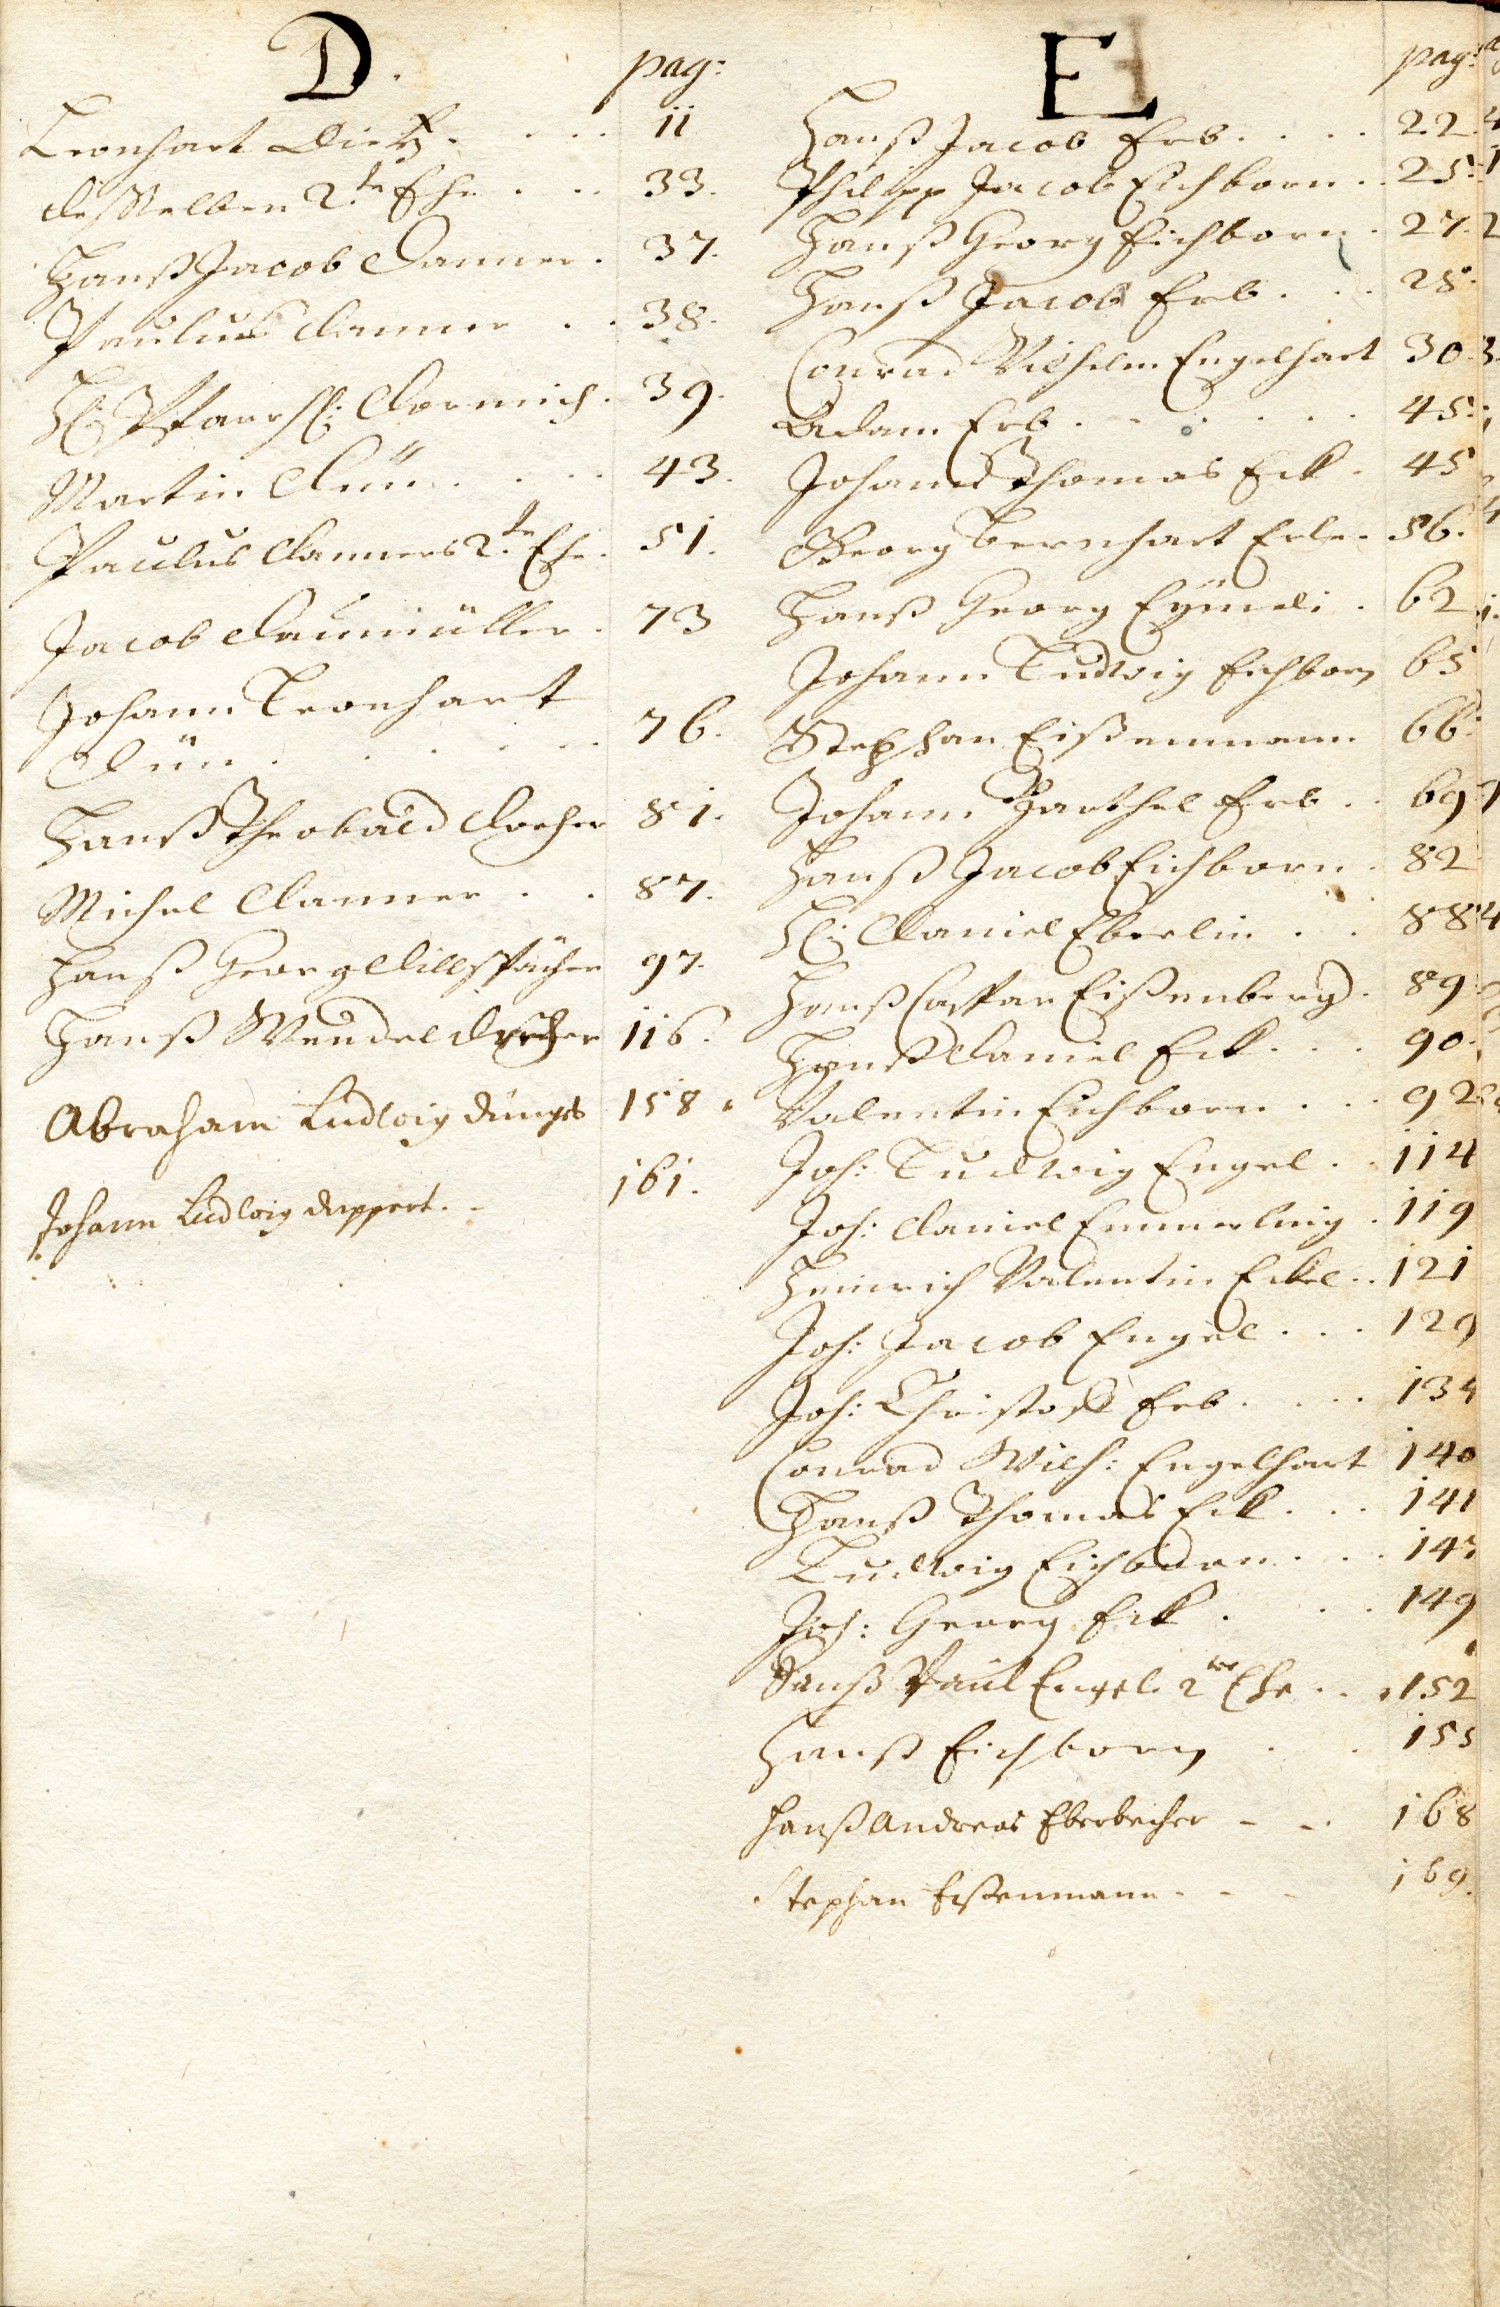 D. pag:
Leonhart Dietz. . . . 11
desselben 2.te Ehe . . . 33.
Hanß Jacob Danner. 37.
Paulus Danner . . 38.
H: Pfarrh: Dormich. 39.
Martin Dün . . . . 43.
Paulus Danners 2.te Ehe. 51.
Jacob Daumüller. 73
Johann Leonhart
Dün . . . . . 76.
Hanß Theobald Docher 81.
Michel Danner . . 87.
Hanß Georg Dillspächer 97.
Hanß Wendel 116.
Abraham Ludwig Dünges 158.
Johann Ludwig Duppert. - 161.
E pag:
Hanß Jacob Erb. . . . 22.
Philipp Jacob Eichborn . . 25.
Hanß Georg Eichborn. 27.
Hanß Jacob Erb. . . 28.
Conrad Wilhelm Engelhart 30.
Adam Erb. . . . . . 45.
Johann Thomas Eck. 45
Georg Bernhart Erle. 56.
Hanß Georg 62
Johann Ludwig Eichborn 65
Stephan Eißenmann 66.
Johann Barthel Erb. . 69
Hanß Jacob Eichborn. 82
H: Daniel Eberlin . . 88
Hanß Caspar Eißenberg. 89
Hanß Daniel Eck. . . 90.
Valentin Eichborn. . . 92
Joh: Ludwig Engel. . 114
Joh: Daniel Emmerling. 119
Heinrich Valentin Eckel. . 121
Joh: Jacob Engel. . . 129
Joh: Christoph Erb. . . . 134
Conrad Wilh: Engelhart 140
Hanß Thomas Eck. . . 141
Ludwig Eichborn. . . 147
Joh: Georg Eck. . . 149
Hanß Paul Engel. 2te Ehe. . . 152
Hanß Eichborn . . 155
Hanß Andreas Eberbecher - - . 168
Stephan Eißenmann. - - 169.